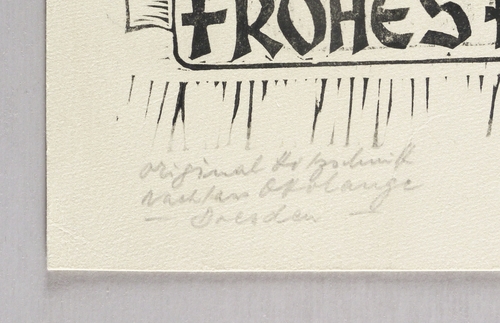 FROHES F
original Holzschnitt
Otto Lange
— Dresden —